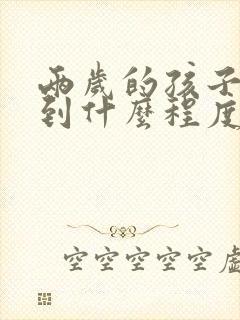 兩歲的孩子
到什麼程度
空空空空空虛